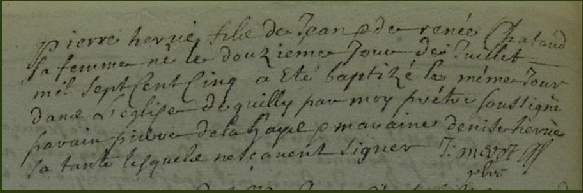 pierre hervie filz de Jean & de renée Chataud
sa femme né le douzieme Jour de Juillet
mil sept Cent Cinq a Eté baptizé le même Jour
dans l'église de quilly par moy prêtre soussigné
parain pierre de la haye & maraine denise hervie
sa tante lesquels ne sçavent signer
pbre